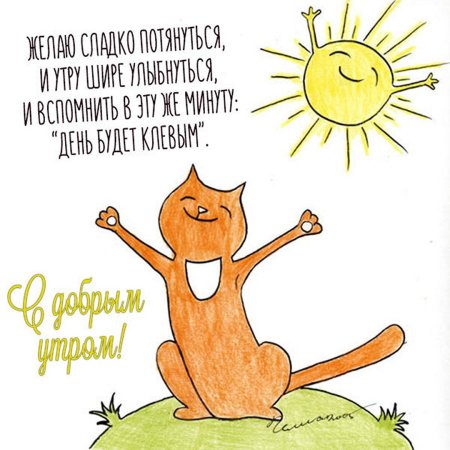 ЖЕЛАЮ СЛАДКО ПОТЯНУТЬСЯ,
И УТРУ ШИРЕ УЛЫБНУТЬСЯ,
И ВСПОМНИТЬ В ЭТУ ЖЕ МИНУТУ:
"ДЕНЬ БУДЕТ КЛЕВЫМ".
С добрым
утром!